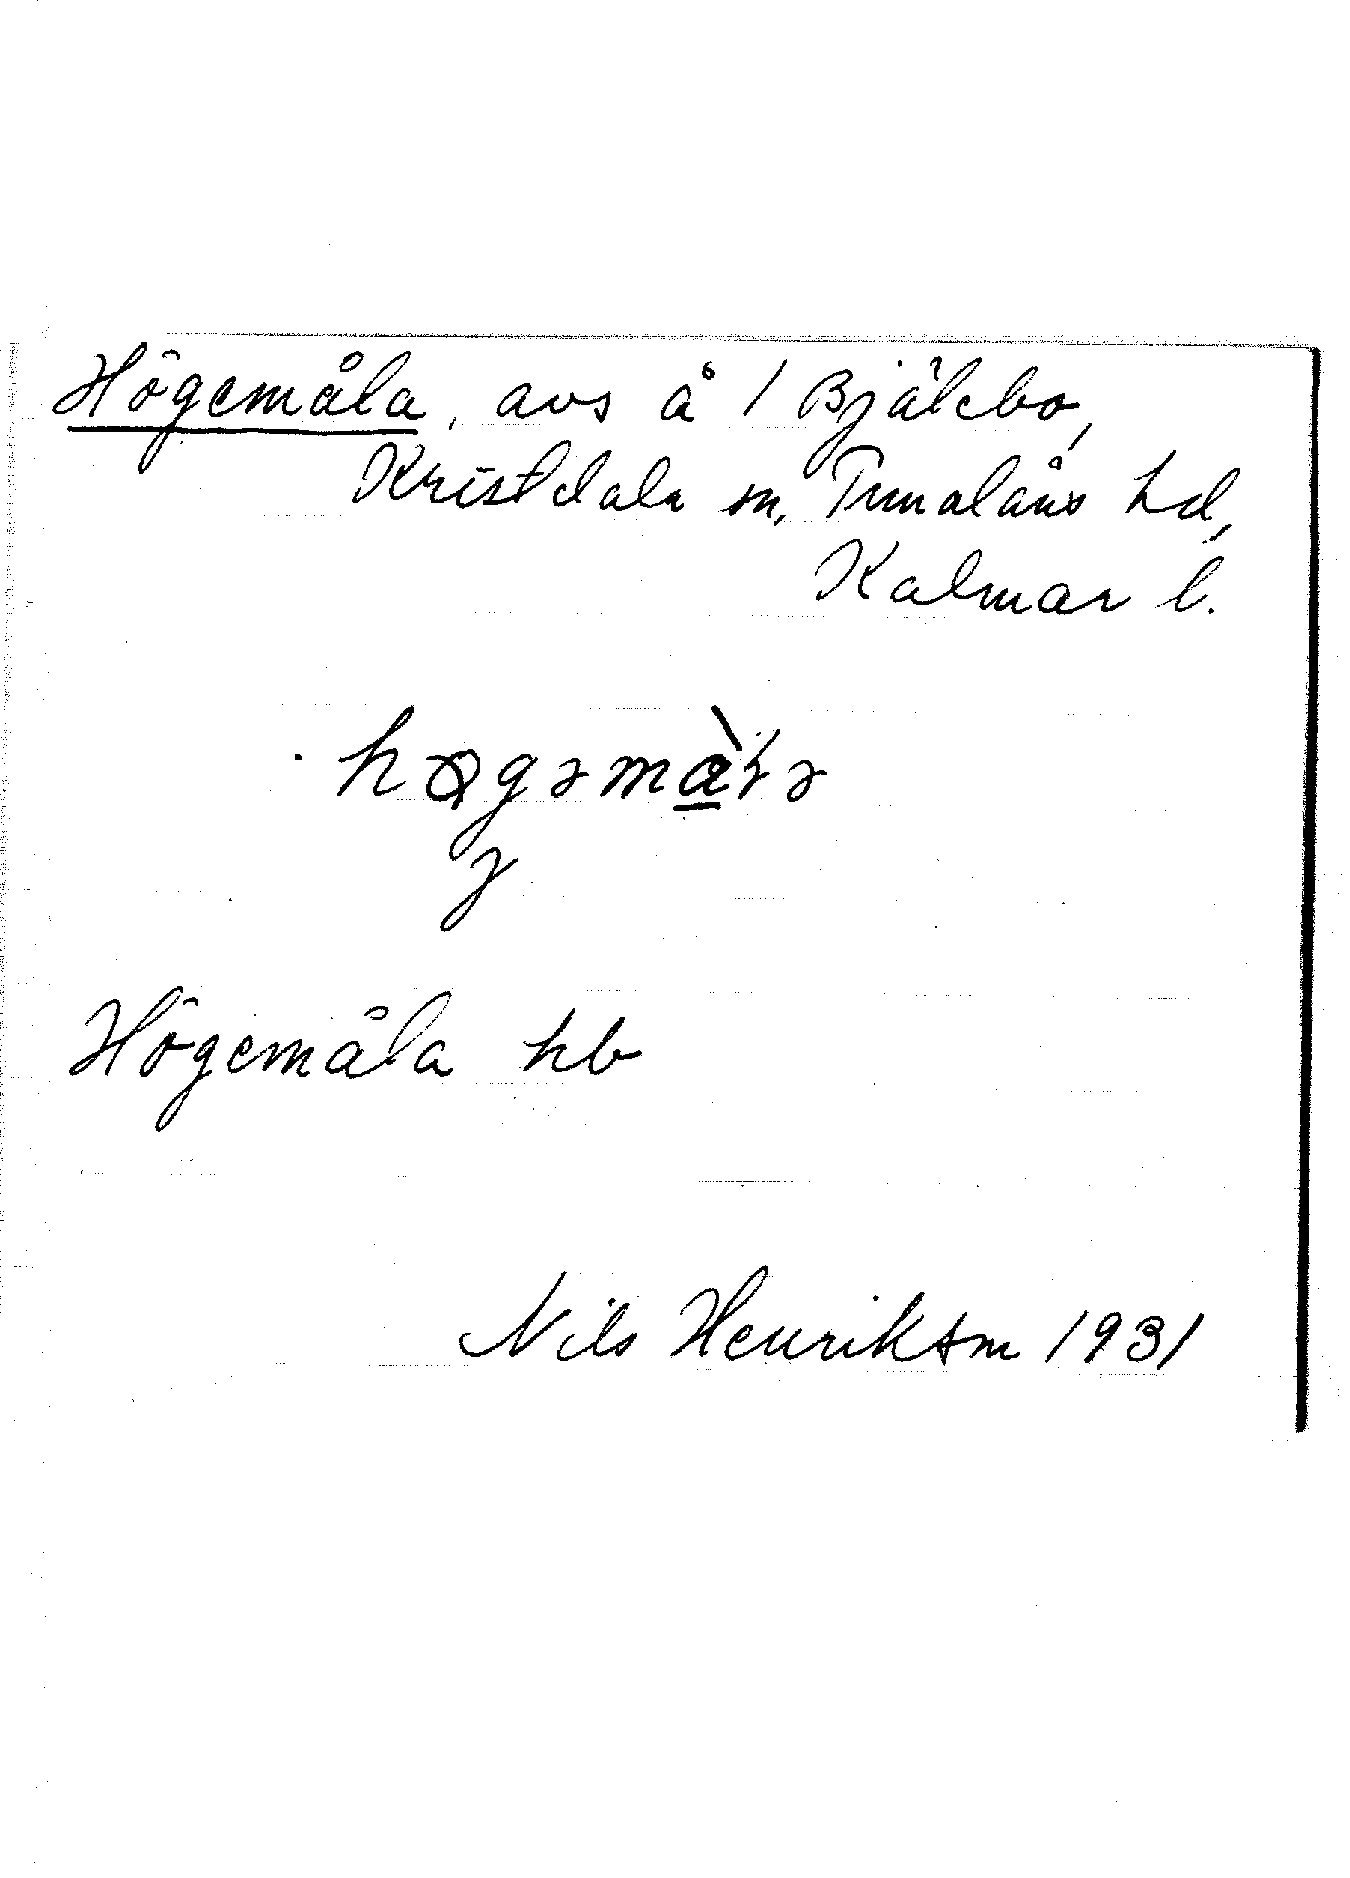 Högemåla, avs å 1 Bjälebo,
Kristdala sn, Tunaläns hd,
Kalmar l.
Högemåla hb
Nils Henriksson 1931